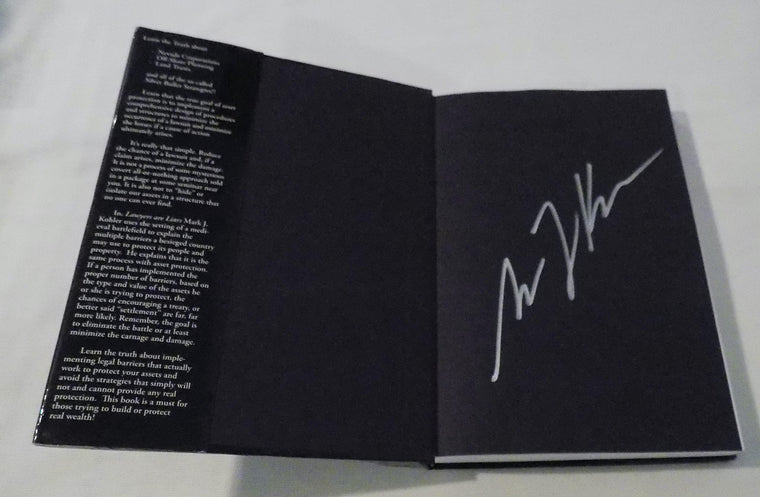 Learn the Truth about
Nevada Corporations
Off-Shore Planning
Land Trusts,
and all of the so-called
Silver Bullet Strategies!!
Learn that the true goal of asset
protection is to implement a
comprehensive design of procedures
and structures to minimize the
occurrence of a lawsuit and minimize
the losses if a cause of action
ultimately arises.
It's really that simple. Reduce
the chance of a lawsuit and, if a
claim arises, minimize the damage.
It is not a process of some mysterious
covert all-or-nothing approach sold
in a package at some seminar near
you. It is also not to "hide" or
isolate our assets in a structure that
no one can ever find.
In, Lawyers are Liars Mark J.
Kohler uses the setting of a medi-
eval battlefield to explain the
multiple barriers a besieged country
may use to protect its people and
property. He explains that it is the
same process with asset protection.
If a person has implemented the
proper number of barriers, based on
the type and value of the assets he
or she is trying to protect, the
chances of encouraging a treaty, or
better said "settlement" are far, far
more likely. Remember, the goal is
to eliminate the battle or at least
minimize the carnage and damage.
Learn the truth about imple-
menting legal barriers that actually
work to protect your assets and
avoid the strategies that simply will
not and cannot provide any real
protection. This book is a must for
those trying to build or protect
real wealth!